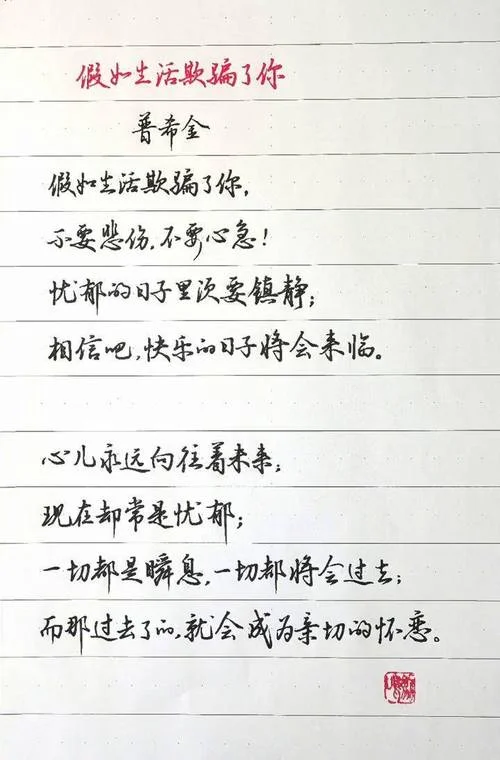 假如生活欺骗了你
普希金
假如生活欺骗了你，
不要悲伤，不要心急！
忧郁的日子里须要镇静；
相信吧，快乐的日子将会来临。
心儿永远向往着未来；
现在却常是忧郁；
一切都是瞬息，一切都将会过去；
而那过去了的，就会成为亲切的怀恋。